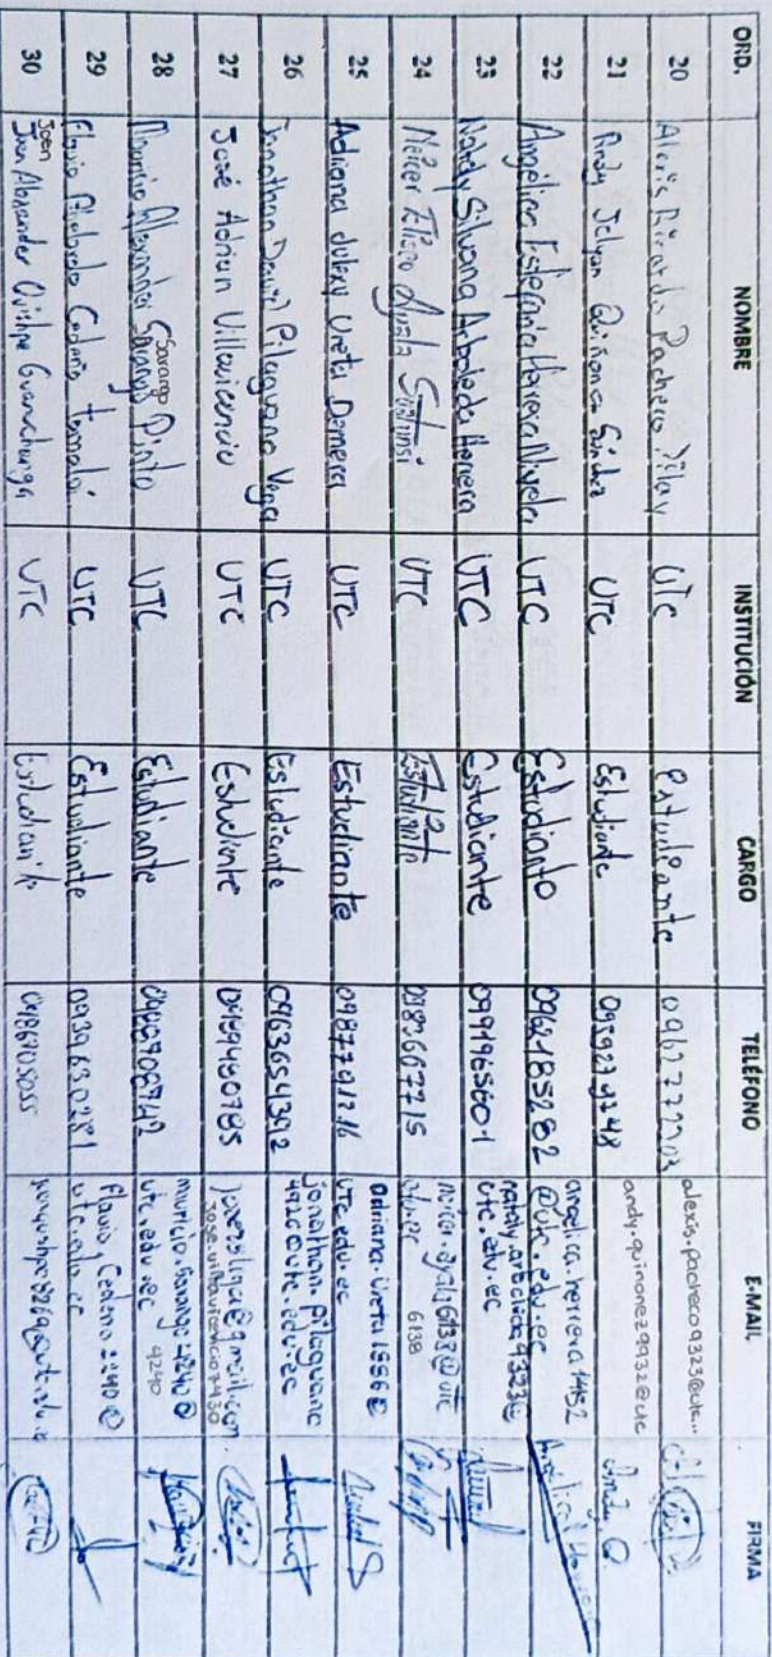 ORD. NOMBRE INSTITUCIÓN CARGO TELÉFONO E-MAIL FIRMA
20 Alexis Ricardo Pacheco Pilay UTC Estudiante alexis.pacheco9323@utc...
21 Andy Jelyan Quiñonez Sánchez UTC Estudiante andy.quinonez9932@utc Andy Q
22 Angélica Estefanía Herrera Nivela UTC Estudiante 0962185282 angelica.herrera1452
@utc.edu.ec
23 Nataly Silvana Arboleda Herrera UTC Estudiante 0991965601 nataly.arboleda9323@
utc.edu.ec
24 Ayala UTC Estudiante 0983667715 ayala6138@utc
.edu.ec 6138
25 Adriana Ureta UTC Estudiante Adriana.Ureta1556@
UTC.edu.ec
26 Jonathan David Pilaguano Vega UTC Estudiante 0963654392 jonathan.pilaguano
4926@utc.edu.ec
27 José Adrian Villavicencio UTC Estudiante @gmail.com
jose.villavicencio7430
28 Mauricio Alexander Sarango Sarango Pinto UTC Estudiante mauricio.sarango4240@
utc.edu.ec 4240
29 Flavio Cedeño UTC Estudiante 0939630281 Flavio.Cedeno2240@
utc.edu.ec
30 Joen Alexander Quishpe Guanchunga UTC Estudiante